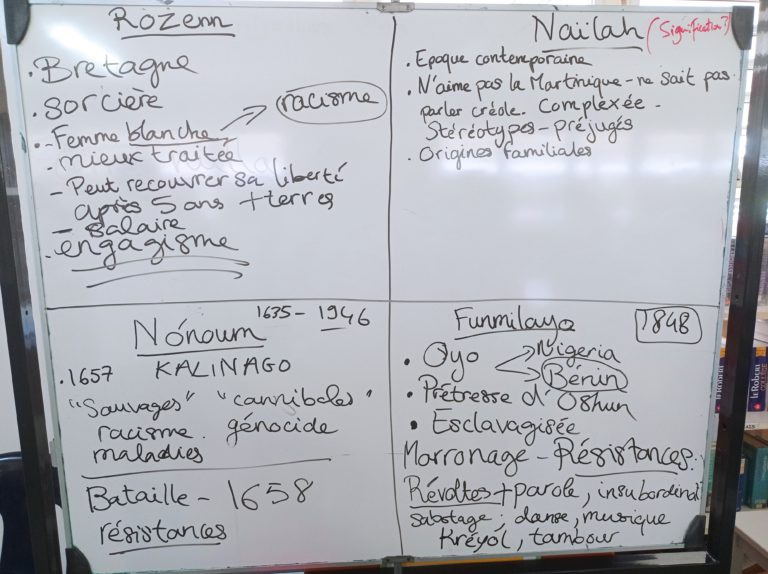 Rozenn
. Bretagne
. sorcière
.- Femme blanche → racisme
. mieux traitée
- Peut recouvrer sa liberté
après 5 ans + terres
- salaire
. engagisme
Naïlah (Signification?)
. Epoque contemporaine
. N'aime pas la Martinique - ne sait pas
parler créole. Complexée -
Stéréotypes - préjugés
. Origines familiales
1635 - 1946
Nónoum
. 1657 KALINAGO
"Sauvages" "cannibales"
racisme. génocide
maladies
Bataille - 1658
résistances
Funmilayo 1848
. Oyo Nigeria
Bénin
. Prêtresse d'Oshun
. Esclavagisée
Marronage - Résistances.
Révoltes + parole, insubordinat
sabotage, danse, musique
Kréyól, tambour
le Robert
COLLÈGE